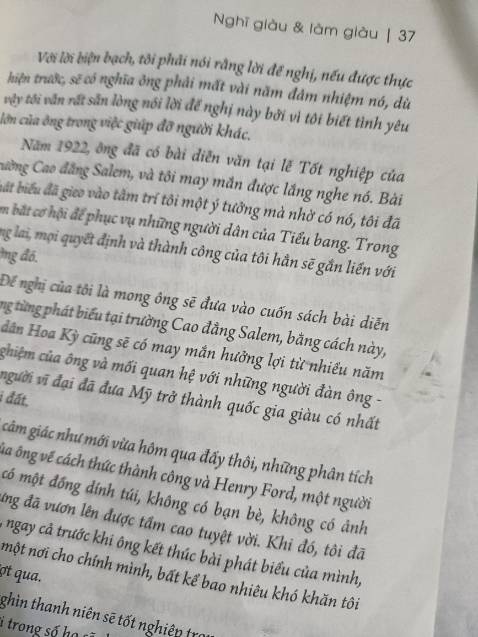 Nghĩ giàu & làm giàu | 37
Với lời biện bạch, tôi phải nói rằng lời đề nghị, nếu được thực
hiện trước, sẽ có nghĩa ông phải mất vài năm đảm nhiệm nó, dù
vậy tôi vẫn rất sẵn lòng nói lời đề nghị này bởi vì tôi biết tình yêu
lớn của ông trong việc giúp đỡ người khác.
Năm 1922, ông đã có bài diễn văn tại lễ Tốt nghiệp của
Cao đẳng Salem, và tôi may mắn được lắng nghe nó. Bài
biểu đã gieo vào tâm trí tôi một ý tưởng mà nhờ có nó, tôi đã
bắt cơ hội để phục vụ những người dân của Tiểu bang. Trong
lai, mọi quyết định và thành công của tôi hẳn sẽ gắn liền với
đó.
Đề nghị của tôi là mong ông sẽ đưa vào cuốn sách bài diễn
từng phát biểu tại trường Cao đẳng Salem, bằng cách này,
dân Hoa Kỳ cũng sẽ có may mắn hưởng lợi từ nhiều năm
nghiệm của ông và mối quan hệ với những người đàn ông -
người vĩ đại đã đưa Mỹ trở thành quốc gia giàu có nhất
đất.
cảm giác như mới vừa hôm qua đấy thôi, những phân tích
của ông về cách thức thành công và Henry Ford, một người
có một đồng dính túi, không có bạn bè, không có ảnh
đã vươn lên được tầm cao tuyệt vời. Khi đó, tôi đã
ngay cả trước khi ông kết thúc bài phát biểu của mình,
một nơi cho chính mình, bất kể bao nhiêu khó khăn tôi
qua.
nghìn thanh niên sẽ tốt nghiệp
trong số họ